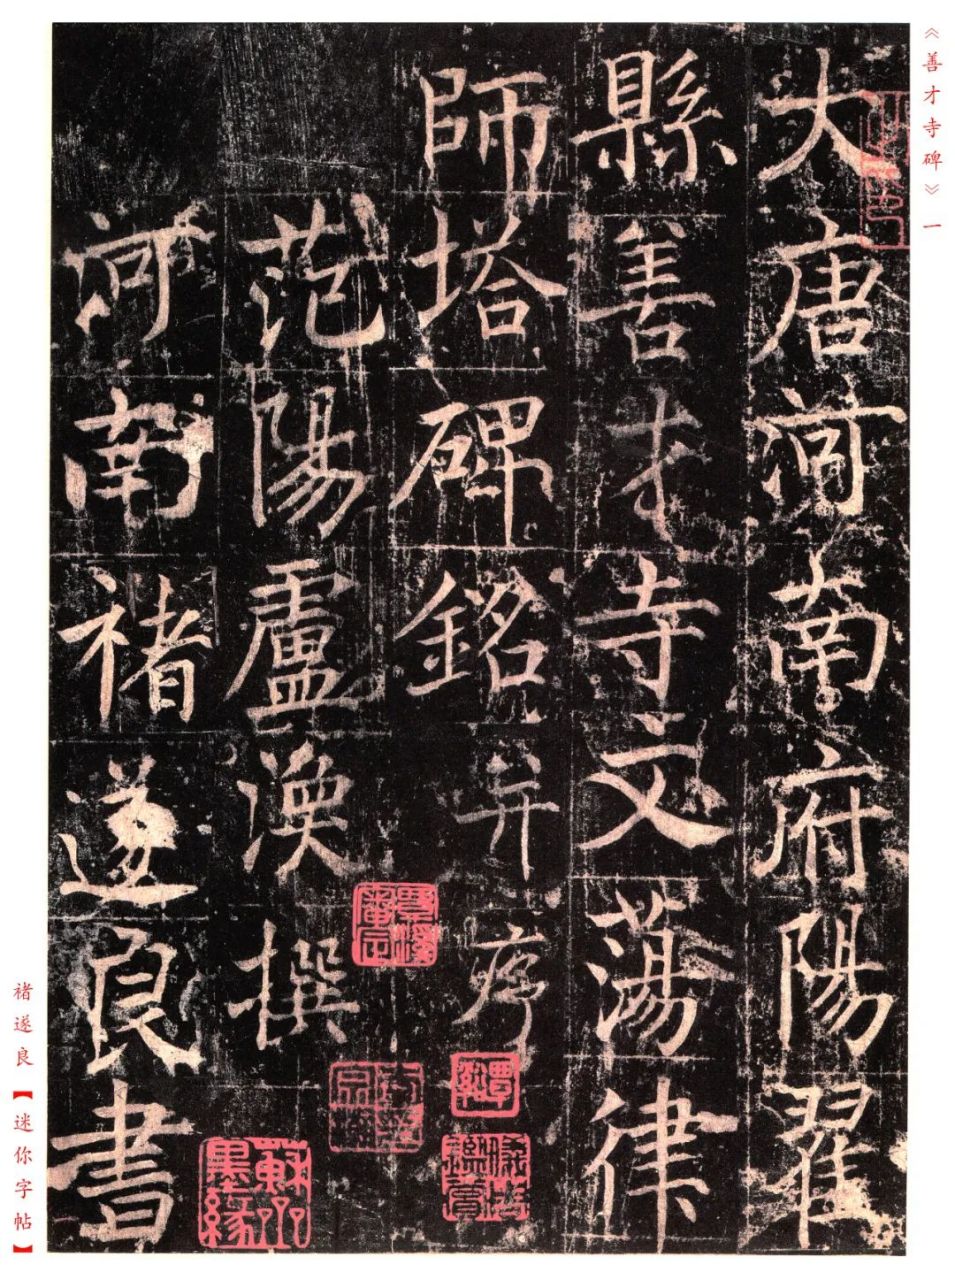 《善才寺碑》一
大唐河南府陽翟
縣善才寺文蕩律
師塔碑銘并序
范陽盧渙撰
河南褚遂良書
褚遂良【迷你字帖】